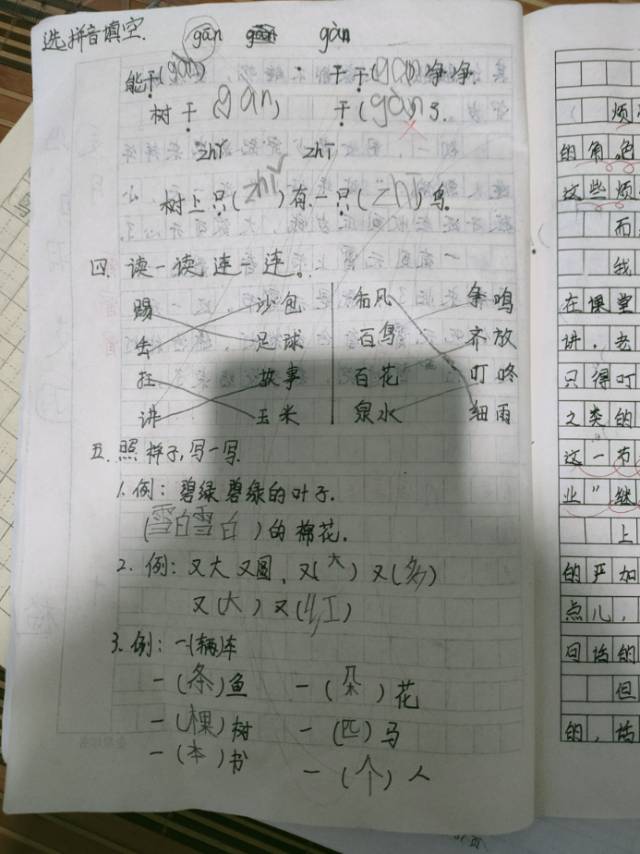 选拼音填空. gān gǎn gàn
能干(gàn) 干干(gān)净净.
树干(gàn) 干(gàn)了.
zhī zhǐ
树上只(zhǐ)有一只(zhī)鸟.
四. 读一读,连一连。
踢 沙包 和风 争鸣
击 足球 百鸟 齐放
拄 故事 百花 叮咚
讲 玉米 泉水 细雨
五. 照样子,写一写.
1. 例: 碧绿碧绿的叶子.
(雪白雪白)的棉花.
2. 例: 又大又圆, 又(大)又(多)
又(大)又(红)
3. 例: 一(辆)车
一(条)鱼 一(朵)花
一(棵)树 一(匹)马
一(本)书 一(个)人
烦
的角色
这些烦
而
我
在课堂
讲,老
只得叮
之类的
这一方
业"继
上
的严加
点儿,
回话的
但
的,话